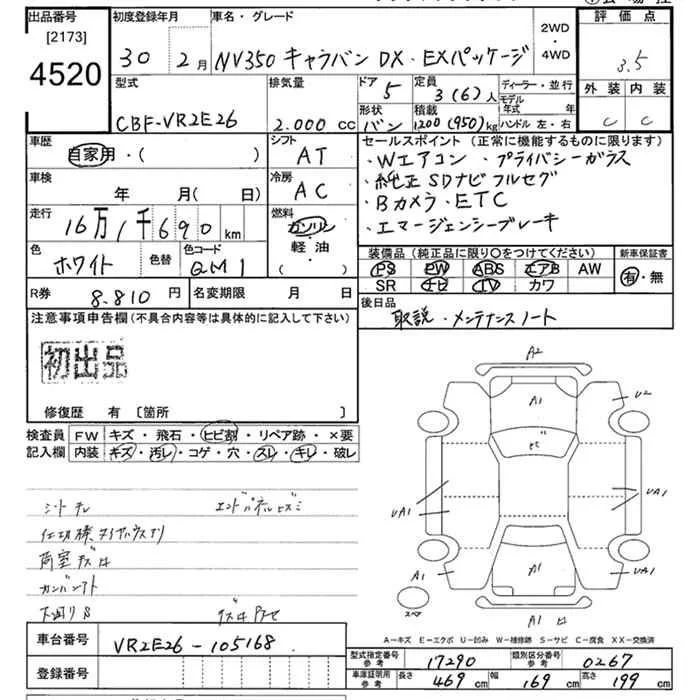 出品番号
[2173]
4520
初度登録年月
30 2月
車名・グレード
NV350 キャラバン DX・EXパッケージ
2WD
・
4WD
評価点
3.5
型式
CBF-VR2E26
排気量
2.000 cc
ドア
5
形状
バン
定員
3(6)人
積載
1200(950)kg
ディーラー・並行
モデル年式 年
ハンドル 左・右
外装 内装
C C
車歴
自家用・( )
シフト
AT
セールスポイント (正常に機能するものに限ります)
・Wエアコン ・プライバシーガラス
・純正SDナビフルセグ
・Bカメラ・ETC
・エマージェンシーブレーキ
車検
年 月(日)
冷房
AC
走行
16万1千690km
燃料
ガソリン
・
軽・油
・( )
色
ホワイト
色替
色コード
QM1
装備品(純正品に限り○をつけてください)
PS PW ABS エアB AW
SR ナビ TV カワ
新車保証書
有・無
R券
8.810円
名変期限 月 日
後日品
取説・メンテナンスノート
注意事項申告欄(不具合内容等は具体的に記入して下さい)
初出品
修復歴 有 [箇所 ]
検査員記入欄
FW キズ・飛石・ヒビ割・リペア跡・×要
内装 キズ・汚レ・コゲ・穴・スレ・キレ・破レ
シートキレ
車台番号
VR2E26-105168
登録番号
A2
A1
U2
ヒビ
UA1
UA1
A1
A1
UA1
スペア
A1
A－キズ E－エクボ U－凹み W－補修跡 S－サビ C－腐食 XX－交換済
型式指定番号
参考
17290
類別区分番号
参考
0267
車庫証明用
参考
長さ
469cm
幅
169cm
高さ
199cm